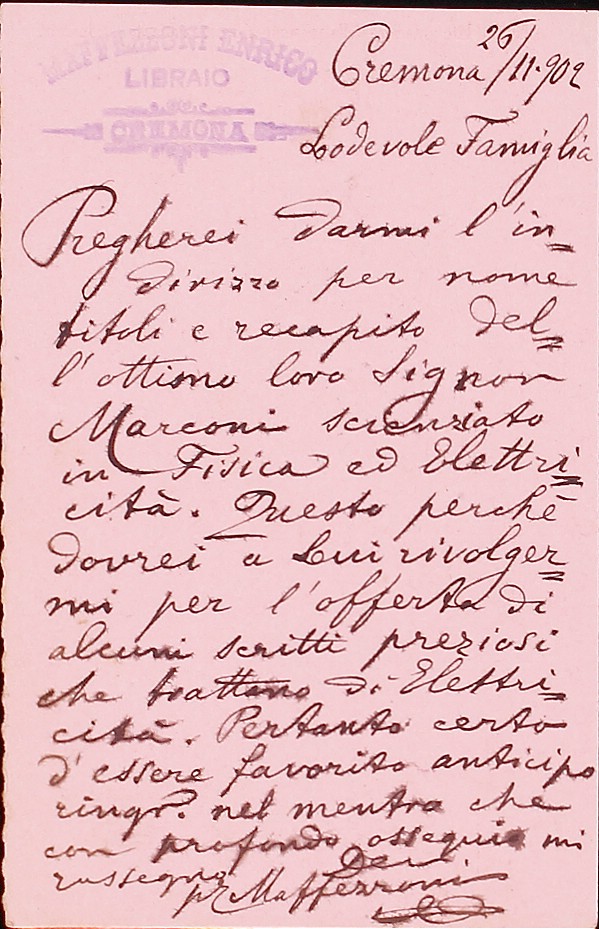 MAFFEZZONI ENRICO
LIBRAIO
CREMONA
Cremona 26/11.902
Lodevole Famiglia
Pregherei darmi l'in=
dirizzo per nome
titoli e recapito del=
l'ottimo loro Signor
Marconi scienziato
in Fisica ed Elettri=
cità. Questo perchè
dovrei a Lui rivolger=
mi per l'offerta di
alcuni scritti preziosi
che trattano di Elettri=
cità. Pertanto certo
d'essere favorito anticipo
ringr. nel mentre che
con profondo ossequio mi
rassegno
pr Maffezzoni